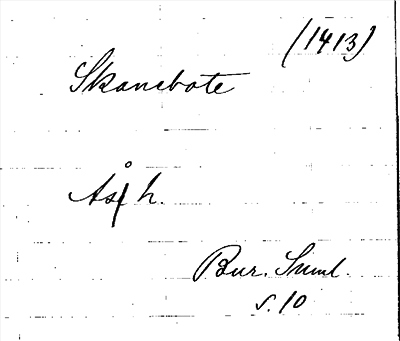 (1413)
Skanebote
Ås h.
Bur. Suml.
s. 10